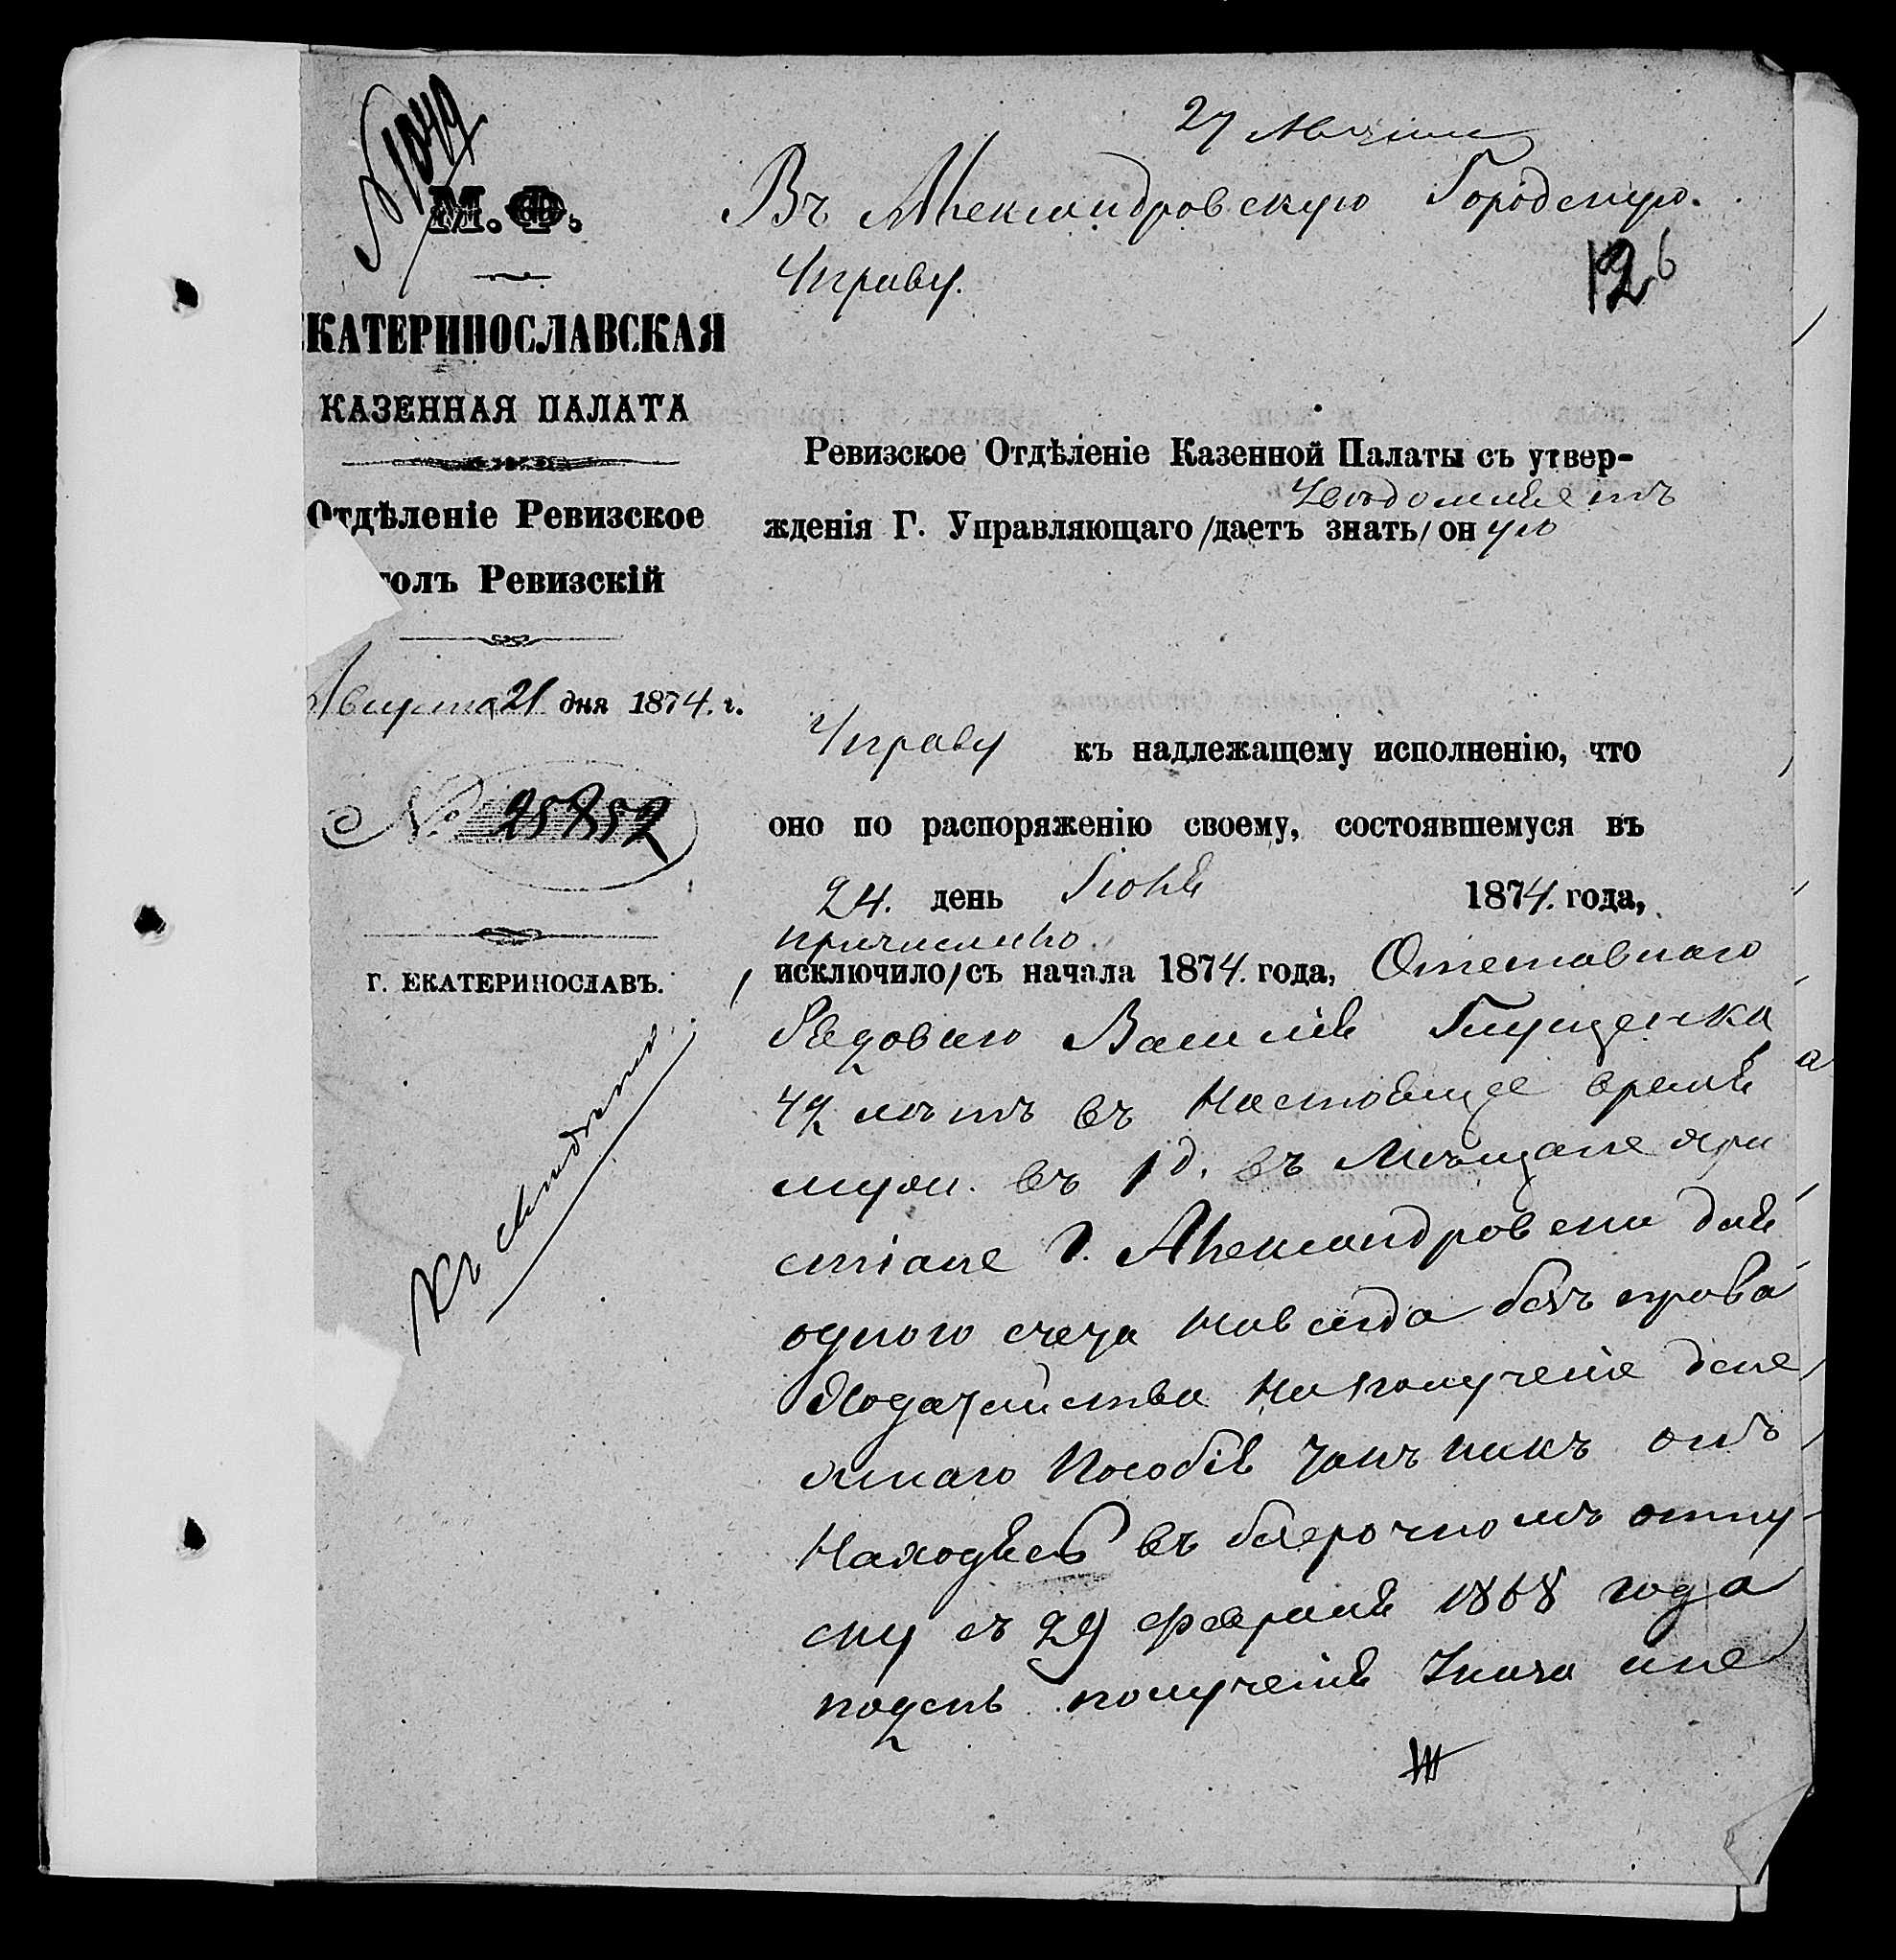 № 1049
М. Ф.
ЕКАТЕРИНОСЛАВСКАЯ
КАЗЕННАЯ ПАЛАТА
Отдѣленіе Ревизское
толъ Ревизскій
Августа 21 дня 1874. г.
№ 25852
Г. ЕКАТЕРИНОСЛАВЪ.
Къ
27 Августа
Въ Александровскую Городскую
Управу.
126
Ревизское Отдѣленіе Казенной Палаты съ утвер-
Увѣдомляетъ
жденія Г. Управляющаго /даетъ знать/ оную
Управу къ надлежащему исполненію, что
оно по распоряженію своему, состоявшемуся въ
24. день Іюня 1874. года,
причислило
исключило/ съ начала 1874. года, Отставнаго
Рядоваго Василія Глущенка
42 лѣтъ въ настоящее время а
въ 1 д. въ Мѣщане
г. Александровска для
одного счета навсегда безъ права
Ходатайства на полученіе дене
жнаго пособія такъ какъ онъ
находясь въ безсрочномъ отпу
ску съ 29 февраля 1868 года
по день полученія Указа